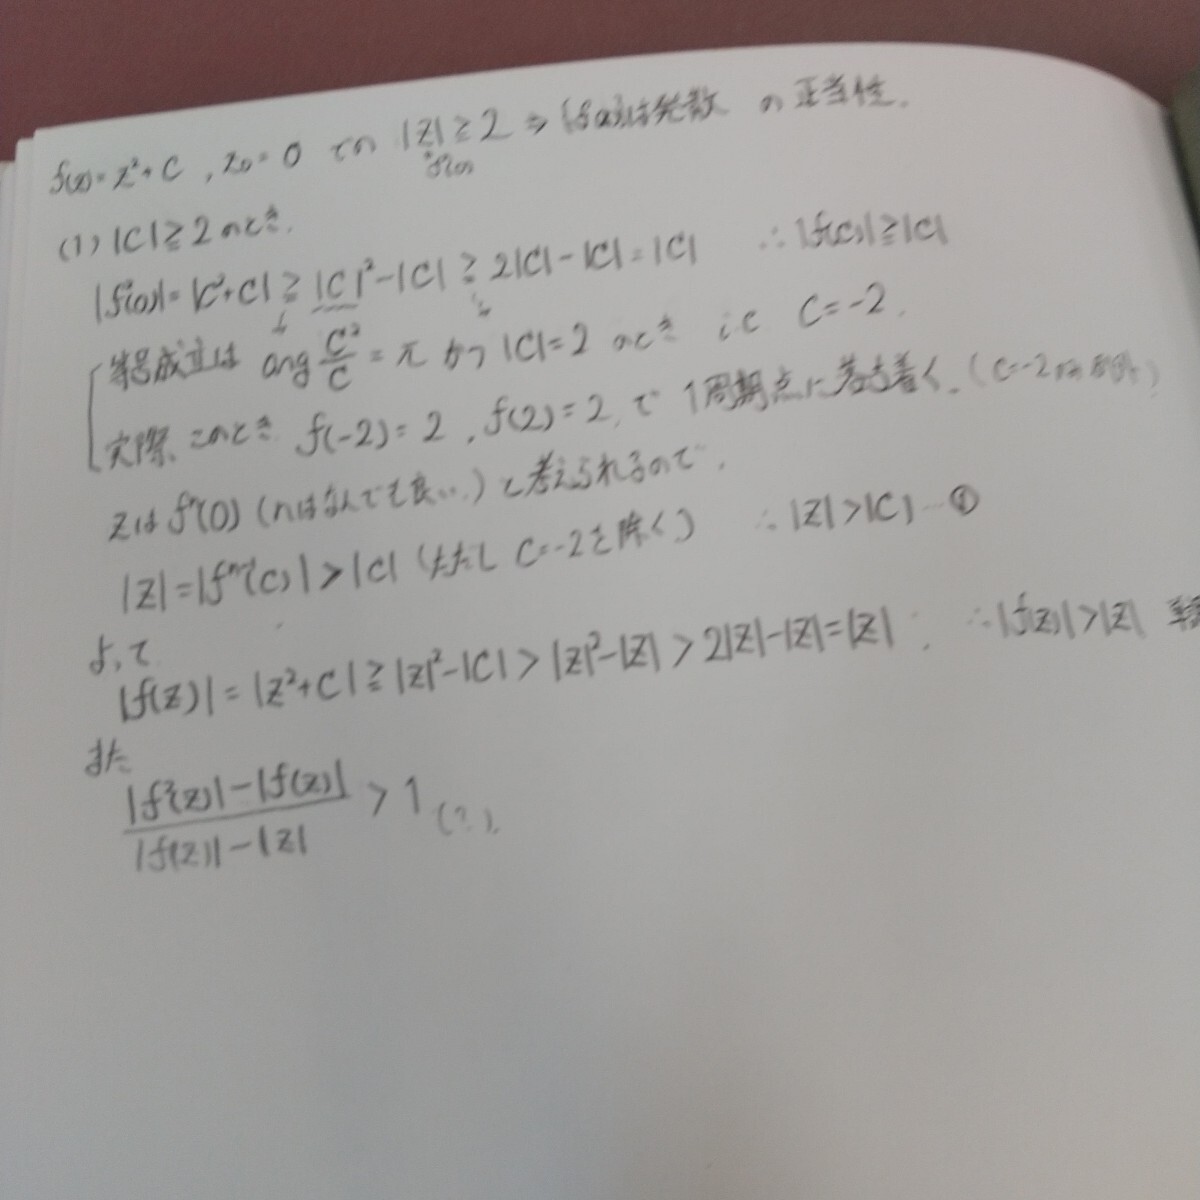 f(z)=z²+c , z₀=0 での |z|≧2 ⇒ {fⁿ(z)}は発散 の正当性.
fⁿ(0)
(1) |C|≧2のとき.
|f²(0)|=|C²+C|≧|C|²-|C|≧2|C|-|C|=|C| ∴|f(C)|≧|C|
等号成立は arg C²/C = π かつ |C|=2 のとき i.e C=-2.
実際、このとき f(-2)=2 , f(2)=2, で 1周期点に落ち着く. (C=-2は例外)
Zは fⁿ(0) (nはなんでも良い.) と考えられるので,
|Z|=|fⁿ⁻¹(C)|>|C| (ただし C=-2を除く) ∴|Z|>|C| … ①
よって
|f(Z)|=|Z²+C|≧|Z|²-|C|>|Z|²-|Z|>2|Z|-|Z|=|Z| ∴|f(Z)|>|Z|
また
|f²(Z)|-|f(Z)| / |f(Z)|-|Z| > 1 (?).